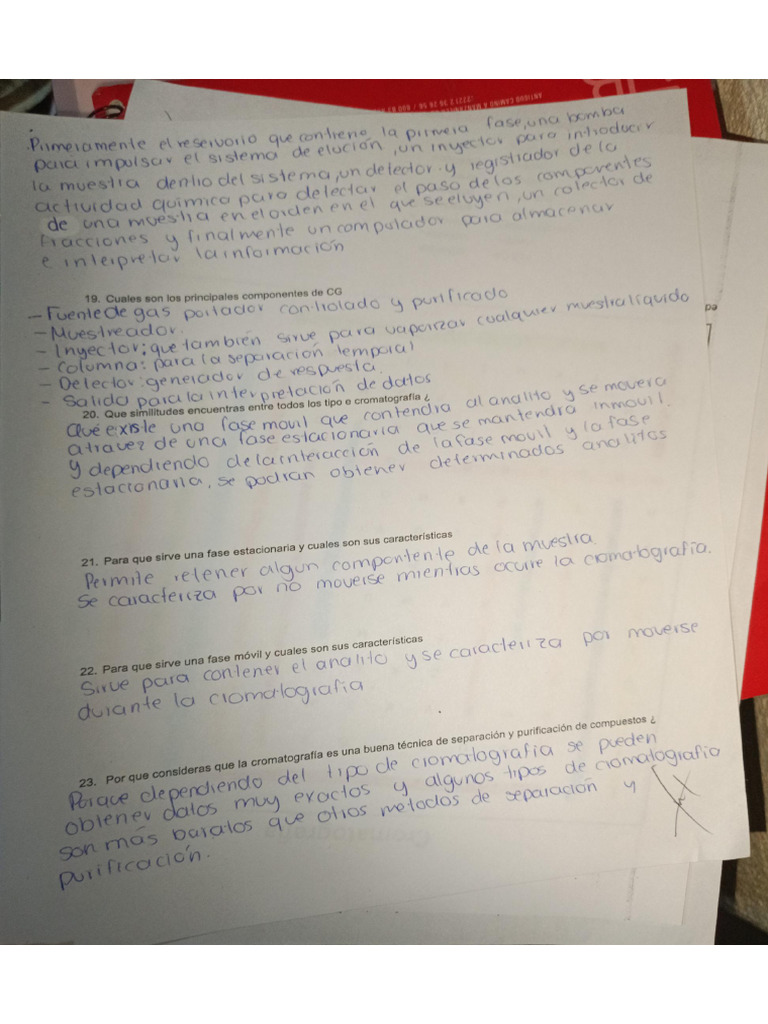 Primeramente el reservorio que contiene la primera fase, una bomba
para impulsar el sistema de elución, un inyector para introducir
la muestra dentro del sistema, un detector y registrador de la
actividad química para detectar el paso de los componentes
de una muestra en el orden en el que se eluyen, un colector de
fracciones y finalmente un computador para almacenar
e interpretar la información
19. Cuales son los principales componentes de CG
- Fuente de gas portador controlado y purificado
- Muestreador.
- Inyector: que también sirve para vaporizar cualquier muestra líquido
- Columna: para la separación temporal
- Detector: generador de respuesta.
- Salida para la interpretación de datos
20. Que similitudes encuentras entre todos los tipo e cromatografía ¿
Qué existe una fase movil que contendra al analito y se movera
atravez de una fase estacionaria que se mantendra inmovil.
y dependiendo de la interacción de la fase movil y la fase
estacionaria, se podran obtener determinados analitos
21. Para que sirve una fase estacionaria y cuales son sus características
Permite retener algun compontente de la muestra
Se caracteriza por no moverse mientras ocurre la cromatografía.
22. Para que sirve una fase móvil y cuales son sus características
Sirve para contener el analito y se caracteriza por moverse
durante la cromatografía
23. Por que consideras que la cromatografía es una buena técnica de separación y purificación de compuestos ¿
Porque dependiendo del tipo de cromatografía se pueden
obtener datos muy exactos y algunos tipos de cromatografía
son más baratos que otros metodos de separación y
purificación.